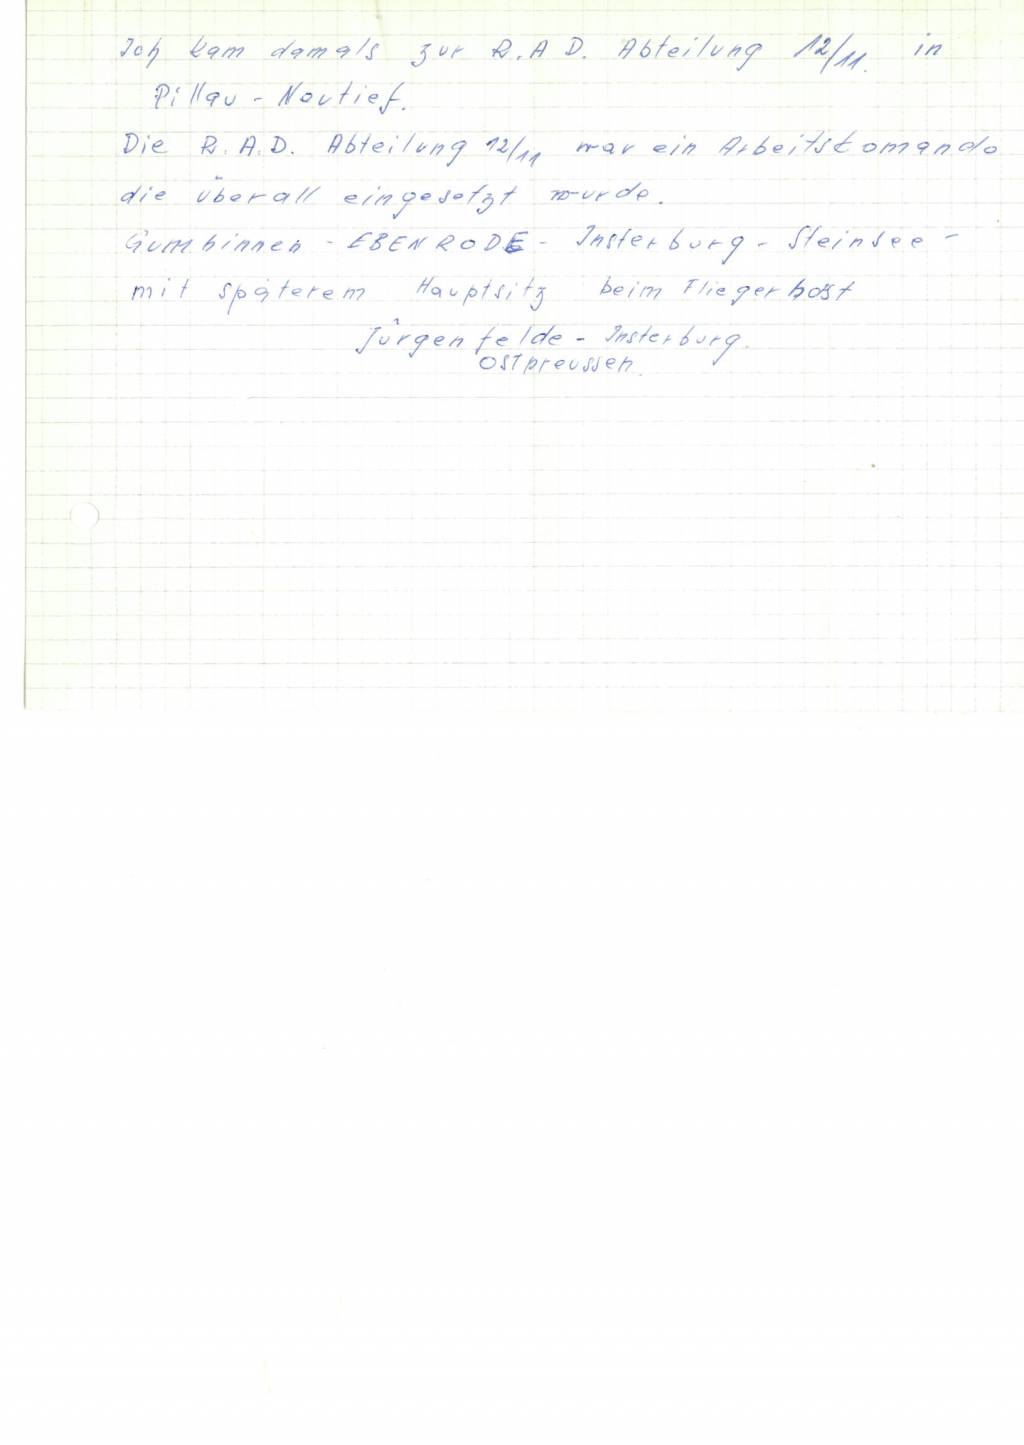 Ich kam damals zur R.A.D. Abteilung 12/11. in
Pillau - Neutief.
Die R.A.D. Abteilung 12/11 war ein Arbeitskomando
die überall eingesetzt wurde.
Gumbinnen - EBENRODE - Insterburg - Steinsee -
mit späterem Hauptsitz beim Fliegerhost
Jürgenfelde - Insterburg.
Ostpreussen.